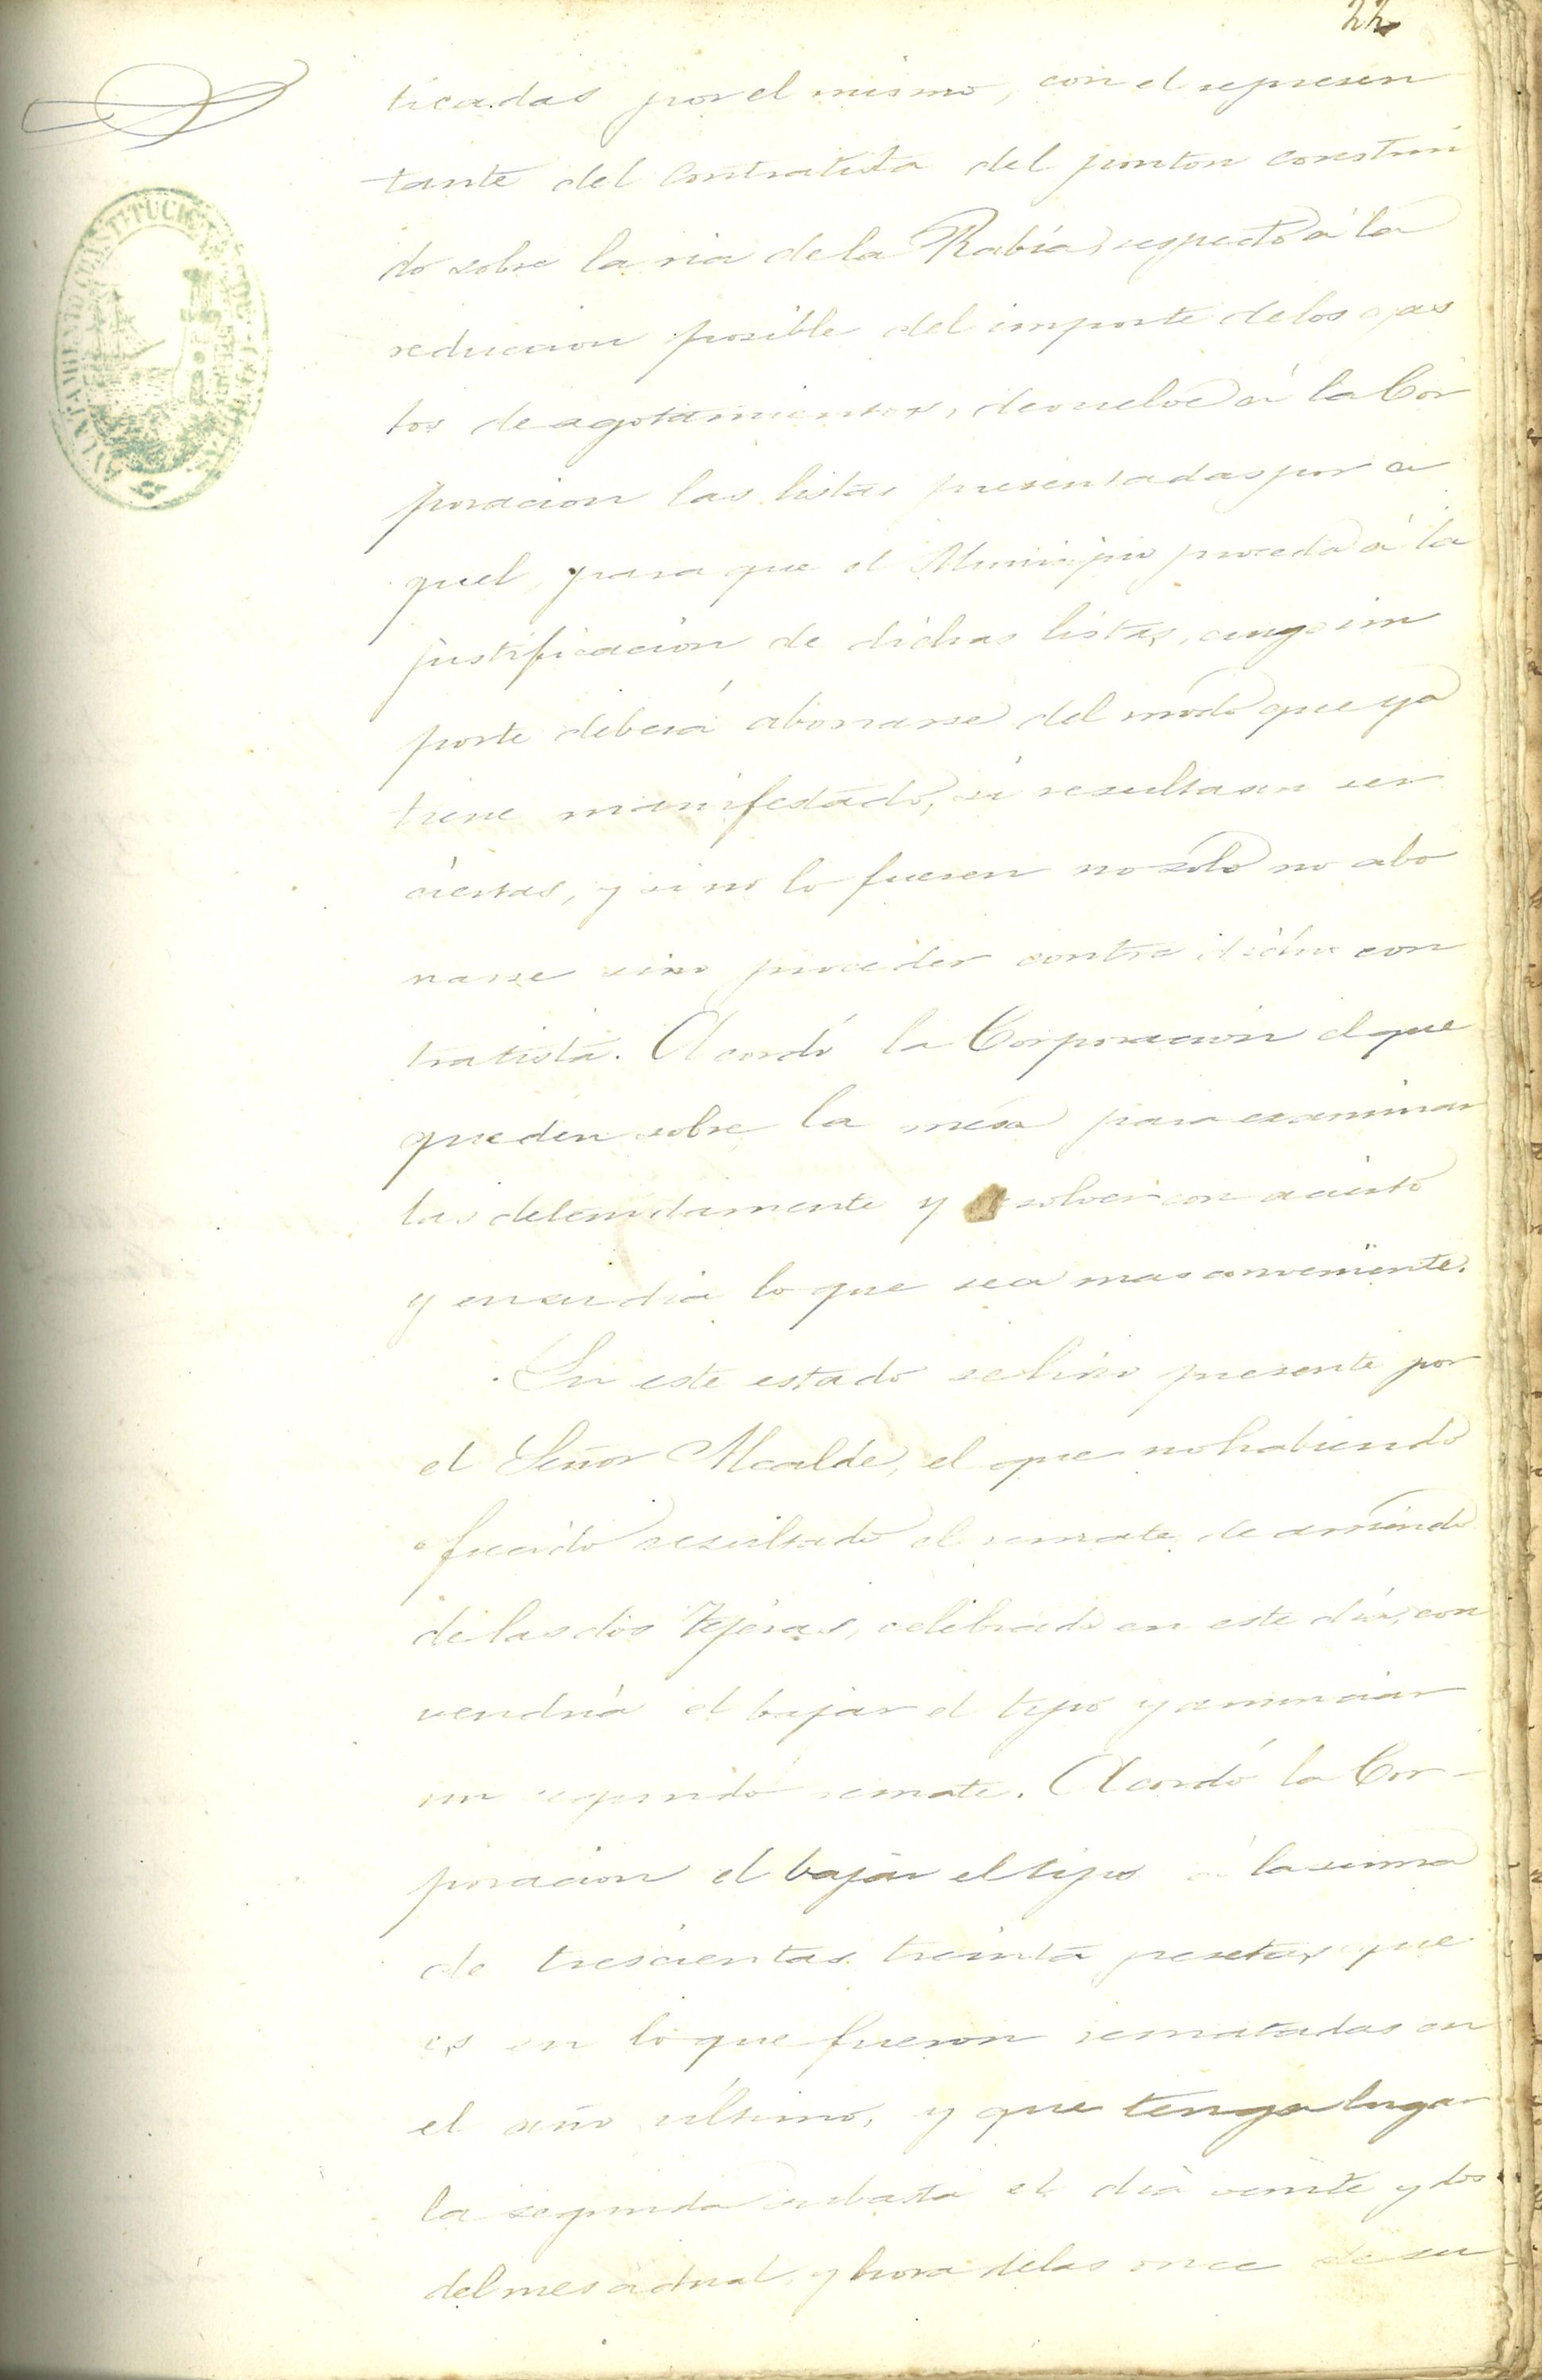 22
ticadas por el mismo, con el represen
tante del Contratista del ponton construi
do sobre la ria de la Rabía, respecto á la
reduccion posible del importe de los gas
tos de agotamientos, devuelve á la Cor
poracion las listas presentadas por a
quel, para que el Municipio proceda á la
justificacion de dichas listas, cuyo im
porte deberá abonarse del modo que ya
tiene manifestado, si resultasen ser
ciertas, y si no lo fuesen no solo no abo
narse sino proceder contra dicho con
tratista. Acordó la Corporacion el que
queden sobre la mesa para examinar
las detenidamente y resolver con acierto
y en su dia lo que sea mas conveniente.
En este estado se hizo presente por
el Señor Alcalde, el que no habiendo
ofrecido resultado el remate de arriendo
de las dos Tejeras, celebrado en este dia, con
vendria el bajar el tipo y anunciar
un segundo remate. Acordó la Cor-
poracion el bajar el tipo á la suma
de trescientas treinta pesetas que
es en lo que fueron rematadas en
el año último, y que tenga lugar
la segunda subasta el dia veinte y dos
del mes actual y hora de las once de su
AYUNTAMIENTO CONSTITUCIONAL DE